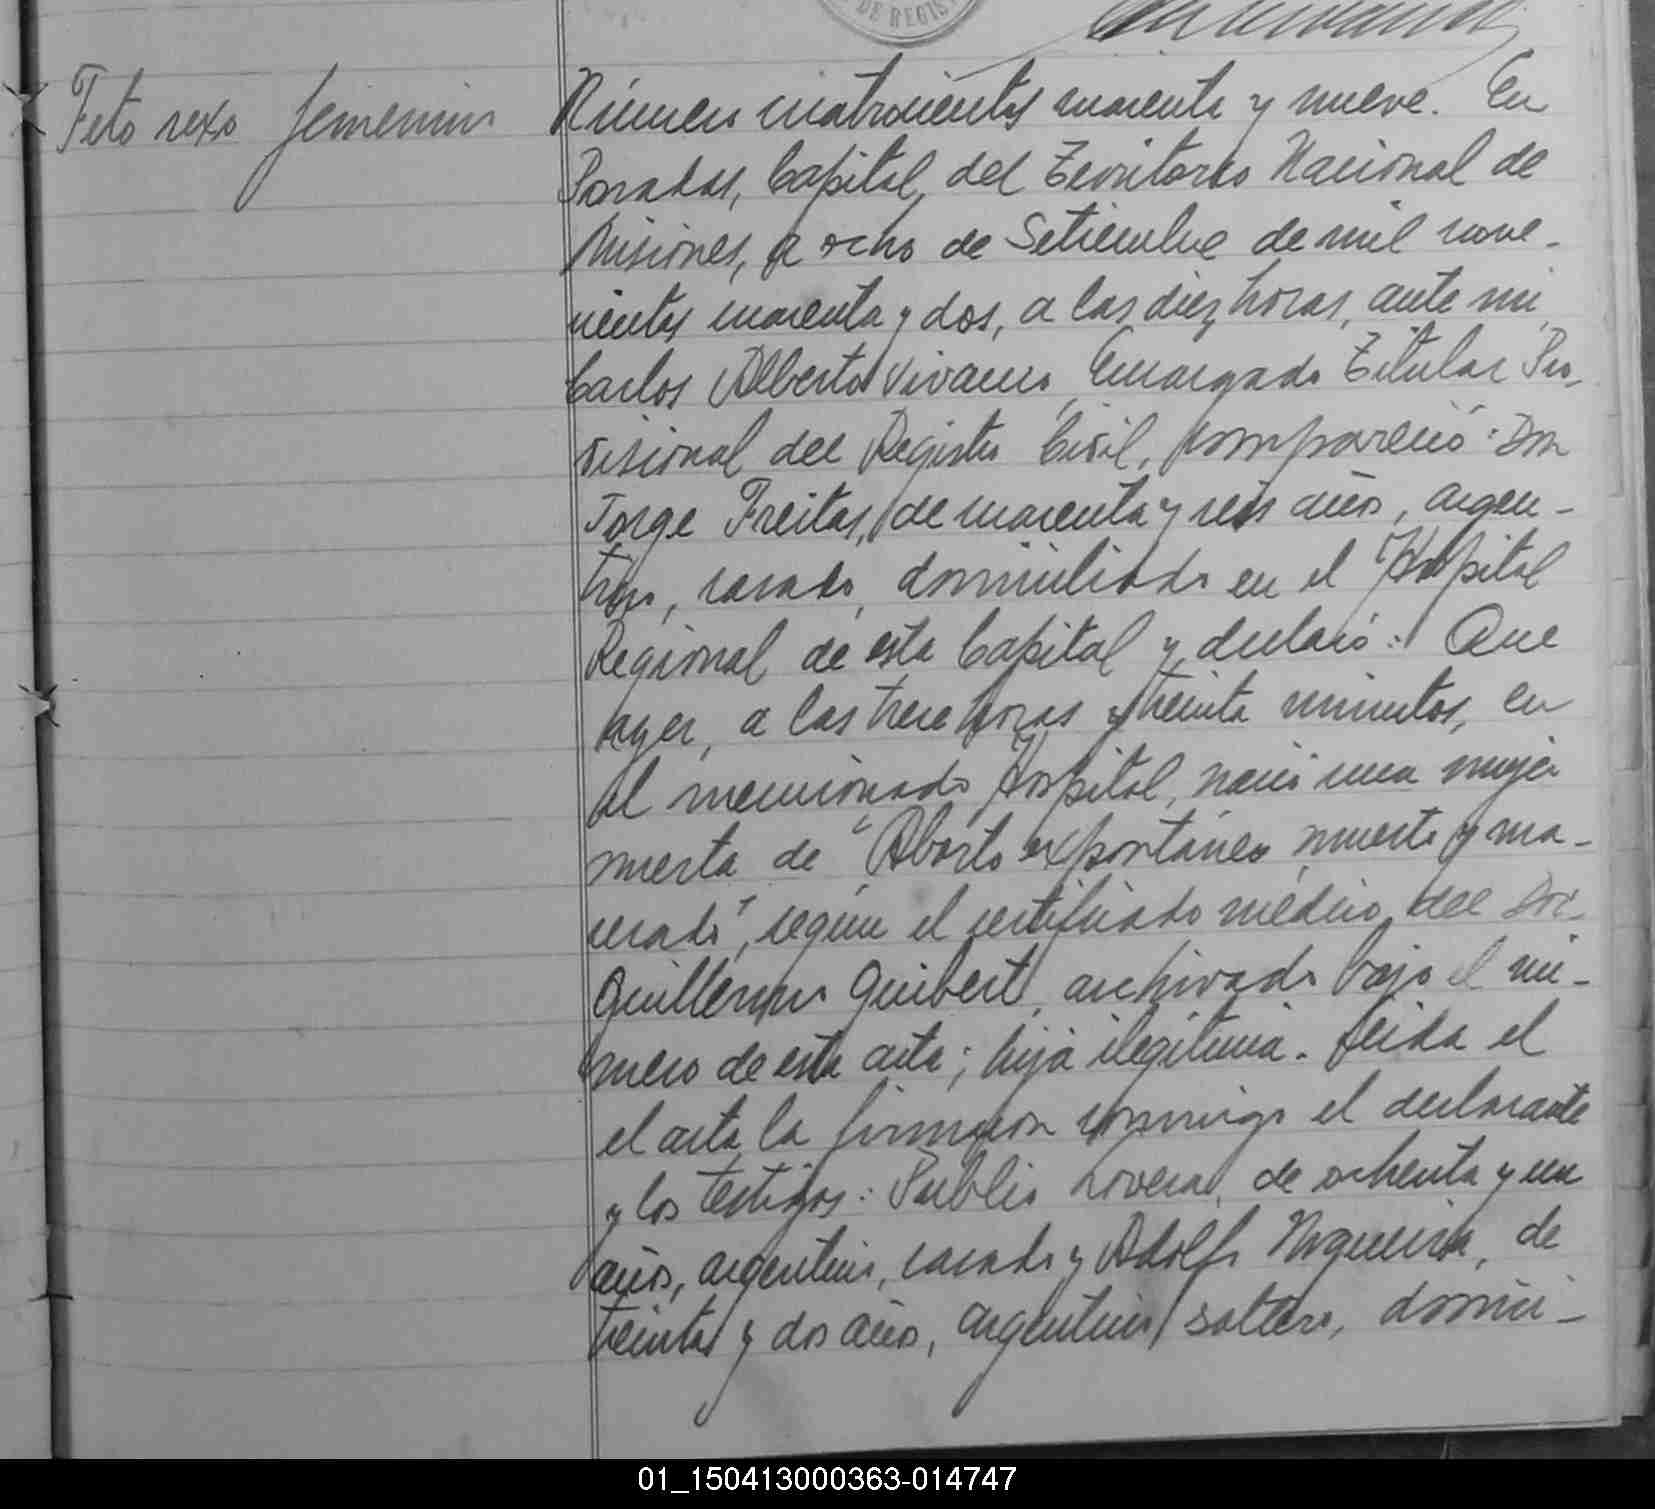 DE REGIS
Feto sexo femenino
Número cuatrocientos cuarenta y nueve. En
Posadas, Capital, del Territorio Nacional de
Misiones, a ocho de Setiembre de mil nove-
cientos cuarenta y dos, a las diez horas, ante mi,
Carlos Alberto Vivanco, Encargado Titular Pro-
visional del Registro Civil, compareció: Don
Jorge Freitas, de cuarenta y seis años, argen-
tino, casado, domiciliado en el Hospital
Regional de esta Capital y declaró: Que
ayer, a las trece horas y treinta minutos, en
el mencionado Hospital, nació una mujer
muerta de "Aborto expontáneo, muerto y ma-
cerado", según el certificado médico del Doc.
Guillermo Guibert, archivado bajo el nú-
mero de esta acta; hija ilegitima. Leida el
el acta la firmaron conmigo el declarante
y los testigos: Publio Lovera, de ochenta y un
años, argentino, casado y Adolfo Nogueira, de
treinta y dos años, argentino, soltero, domici-
01_150413000363-014747